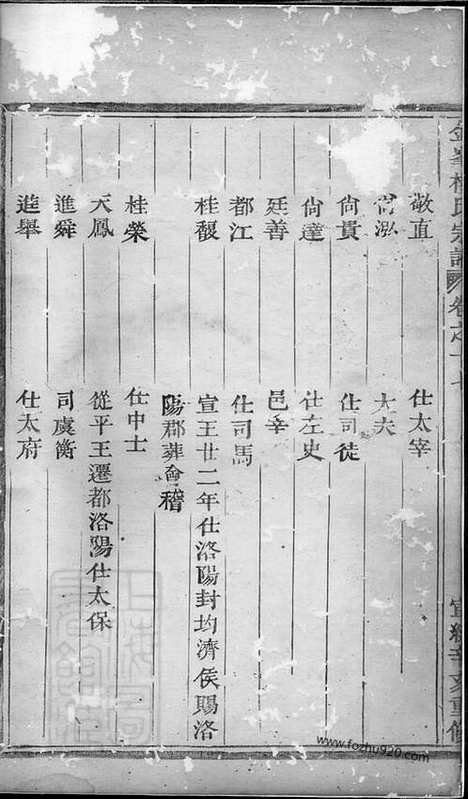 金峯 氏宗譜 卷之十七
宣統辛亥重修
敬直 仕太宰
尚泓 大夫
尙貴 仕司徒
尙達 仕左史
廷善 邑宰
都江 仕司馬
桂馥 宣王廿二年仕洛陽封均濟侯賜洛
陽郡葬會稽
桂榮 仕中士
天鳳 從平王遷都洛陽仕太保
進舜 司虞衡
進舉 仕太府
www.fozhu920.com